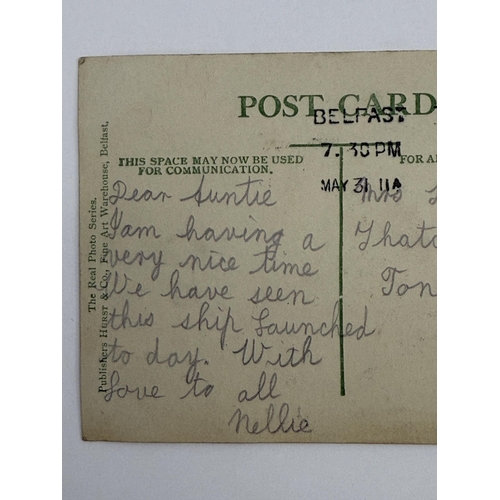 POST CARD
BELFAST
7.30PM
MAY 31 11A
THIS SPACE MAY NOW BE USED
FOR COMMUNICATION.
FOR A
The Real Photo Series.
Publishers HURST & Co., Fine Art Warehouse, Belfast.
Dear Auntie
I am having a
very nice time
We have seen
this ship Launched
to day. With
Love to all
Nellie
Mrs
Thatc
Ton